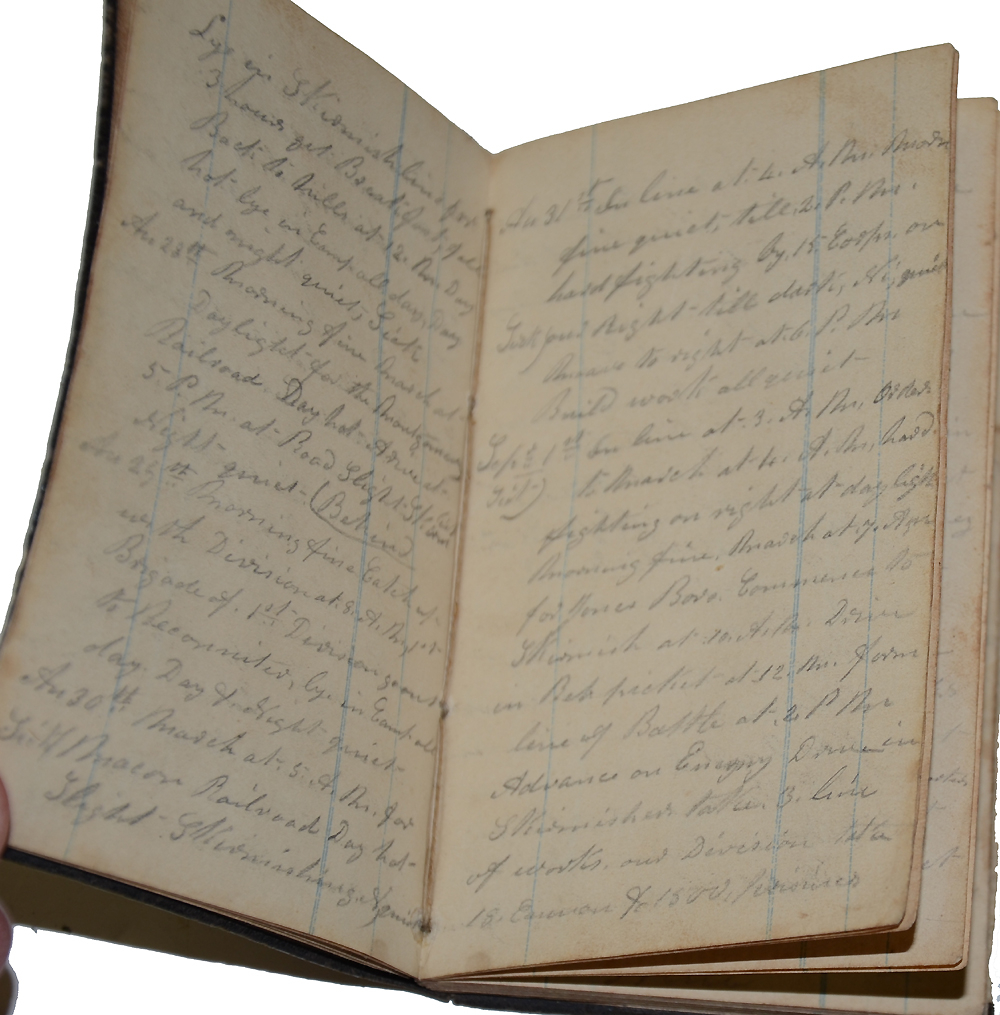 Lye in Skirmish line for
3 hours get Breakfast, fall
Back to hills at 12. M. Day
hot lye in Camp all day, Day
and night quiet, Sick
Au 28th Morning fine March at
Daylight for the Montgomery
Railroad. Day hot Arrive at
5 P. M. at Road Slight Skirm
Night quiet (Behind
Au 29th Morning fine Catch up
with Division at 8. A. M.
Brigade of 1st Division goes out
to Reconnoiter, lye in Camp all
day. Day & Night quiet
Au 30th March at 5. A. M. for
Macon Railroad Day hot
Slight Skirmishing, & quiet
Au 31st In line at 4. A. M. Morn
fine quiet, till 2. P. M.
hard fighting by 15 Corps. on
our Right till dark, quiet
Moove to right at 6. P. M
Build works all quiet
Sept 1st In line at 3. A. M, Order
to March at A. M, hard
fighting on right at day light
Morning fine. March at 7. A M
for Jones Boro. Commence to
Skirmish at 10. A. M. Drive
in Reb picket at 12. M. form
line of Battle at 2. P M
Advance on Enemy Drive in
Skirmishers take. 3. line
of works. our Division take
18. Cannon & 1500, prisoners